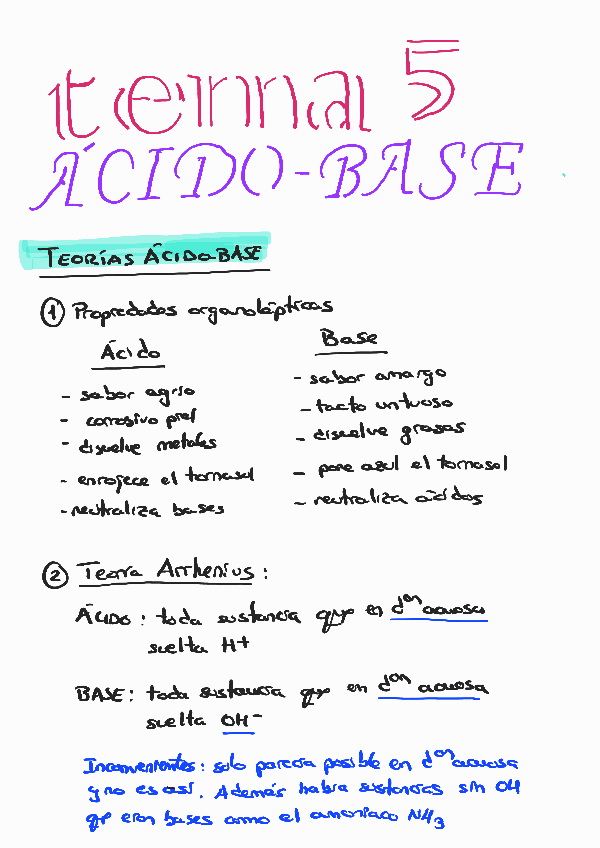 tema 5
ÁCIDO-BASE
TEORÍAS ÁCIDO-BASE
① Propiedades organolépticas
Ácido
- sabor agrio
- corrosivo piel
- disuelve metales
- enrojece el tornasol
- neutraliza bases
Base
- sabor amargo
- tacto untuoso
- disuelve grasas
- pone azul el tornasol
- neutraliza ácidos
② Teoría Arrhenius:
ÁCIDO: toda sustancia que en dᵒⁿ acuosa
suelta H+
BASE: toda sustancia que en dᵒⁿ acuosa
suelta OH⁻
Inconvenientes: solo parecía posible en dᵒⁿ acuosa
y no es así. Además había sustancias sin OH
que eran bases como el amoniaco NH₃